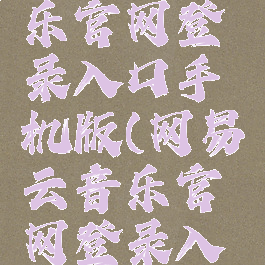 乐官网登
录入口手
机版(网易
云音乐官
网登录入